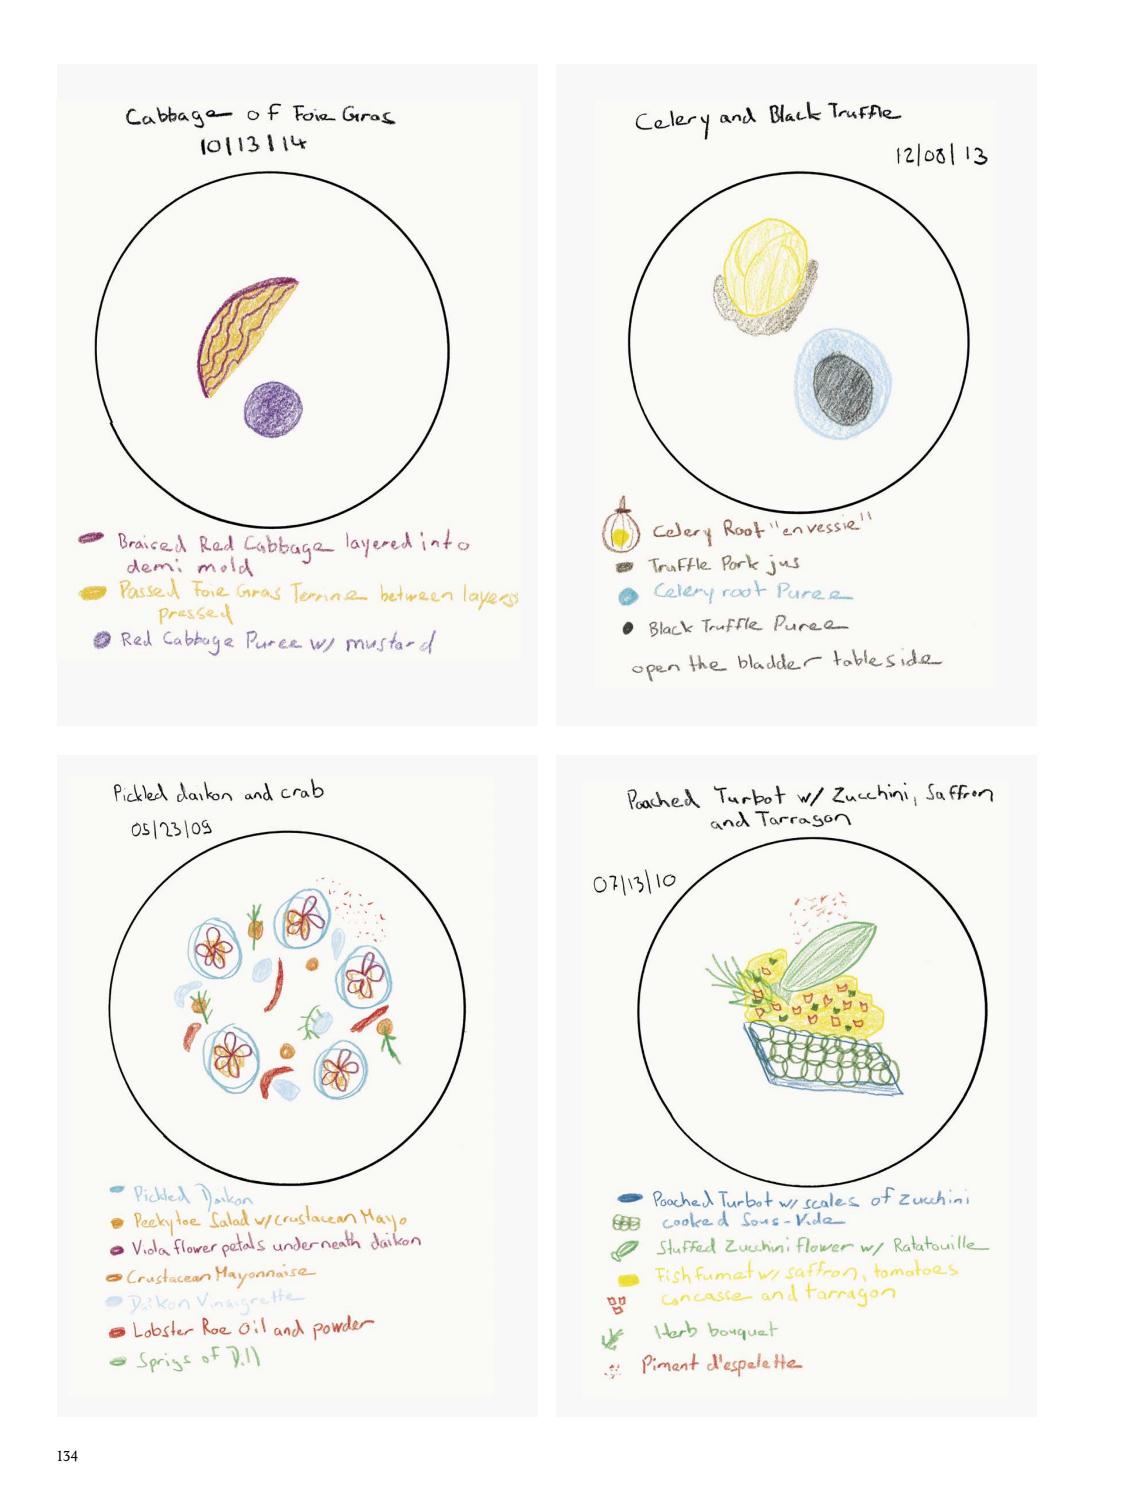 Cabbage of Foie Gras
10/13/14
Braised Red Cabbage layered into
demi mold
Passed Foie Gras Terrine between layers
pressed
Red Cabbage Puree w/ mustard
Celery and Black Truffle
12/08/13
Celery Root "en vessie"
Truffle Pork jus
Celery root Puree
Black Truffle Puree
open the bladder tableside
Pickled daikon and crab
05/23/09
Pickled Daikon
Peekytoe Salad w/crustacean Mayo
Viola flower petals underneath daikon
Crustacean Mayonnaise
Daikon Vinaigrette
Lobster Roe Oil and powder
Sprigs of Dill
Poached Turbot w/ Zucchini, Saffron
and Tarragon
07/13/10
Poached Turbot w/ scales of zucchini
cooked Sous-Vide
Stuffed Zucchini flower w/ Ratatouille
Fish fumet w/ saffron, tomatoes
concasse and tarragon
Herb bouquet
Piment d'espelette
134